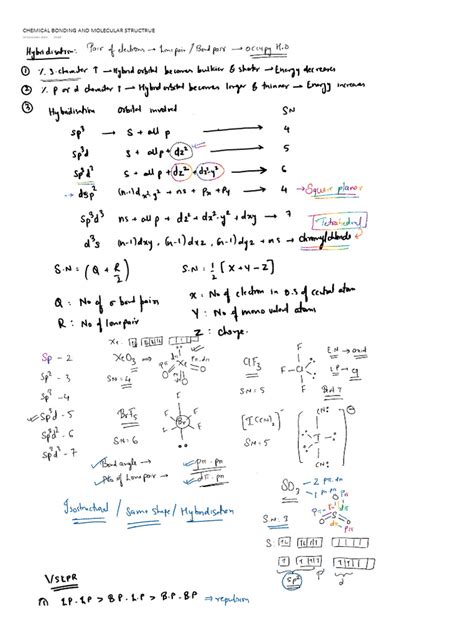 CHEMICAL BONDING AND MOLECULAR STRUCTRUE
Hybridisation: Pair of electrons → Lone pair / Bond pair → occupy H.O
① % S character ↑ → Hybrid orbital becomes bulkier & shorter → Energy decreases
② % P or d character ↑ → Hybrid orbital becomes longer & thinner → Energy increases
③ Hybridisation orbital involved SN
sp³ → S + all p → 4
sp³d S + all p + dz² → 5
sp³d² S + all p + dz² + dx²-y² → 6
→ dsp² (n-1)dx²-y² + ns + Px + Py → 4 → Square planar
sp³d³ ns + all p + dz² + dx²-y² + dxy → 7
Tetrahedral
d³s (n-1)dxy, (n-1)dxz, (n-1)dyz + ns → chromylchloride
S.N = (Q + R/2) S.N = 1/2 [X + Y - Z]
Q : No of σ bond pairs X : No of electron in O.S of central atom
R : No of lone pair Y : No of monovalent atoms
Z : charge.
Xe:
Sp - 2
Sp² - 3
Sp³ - 4
Sp³d - 5
Sp³d² - 6
Sp³d³ - 7
XeO₃ → Xe O O O pπ-dπ
SN = 4
ClF₃ F Cl F F
SN = 5
EN → axial
LP → eq
BrF₅ F F F F F Br
SN = 6
[I(CN)₂]⁻ CN I CN ⊖
SN = 5
Bond angle → pπ-pπ
No of Lone pair → dπ-pπ
SO₃ - 2 pπ-dπ
- 1 pπ-pπ
S.N: 3
Isostructural / Same shape / Hybridisation
S:
sp² p d
VSEPR
① L.P - L.P > B.P - L.P > B.P - B.P ⇒ repulsion